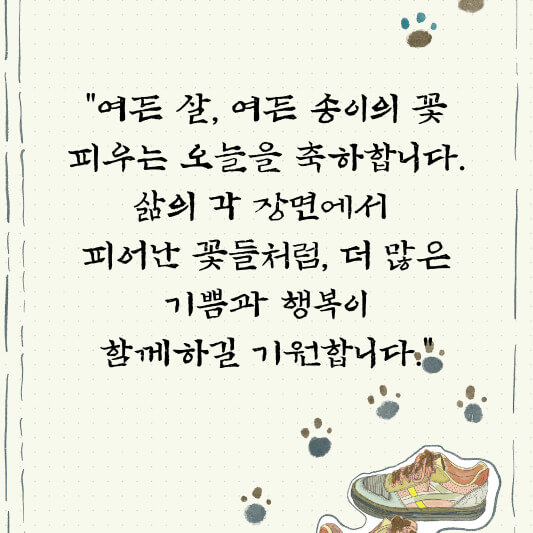 "여든 살, 여든 송이의 꽃
피우는 오늘을 축하합니다.
삶의 각 장면에서
피어난 꽃들처럼, 더 많은
기쁨과 행복이
함께하길 기원합니다."